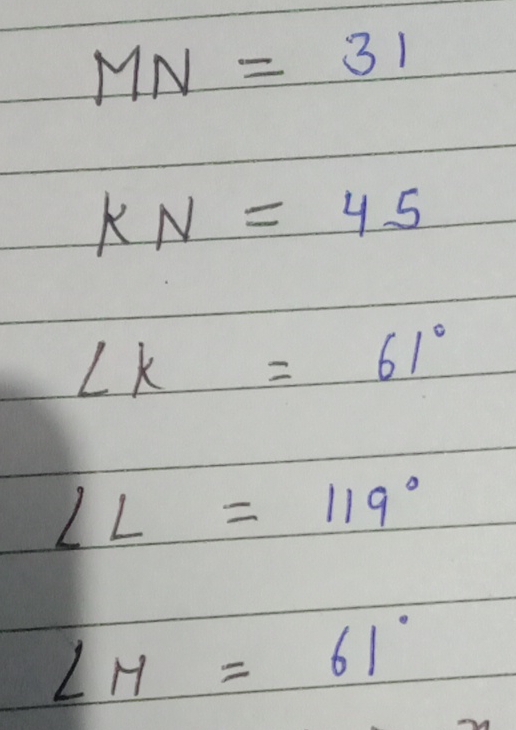 MN = 31
KN = 45
∠K = 61°
∠L = 119°
∠M = 61°